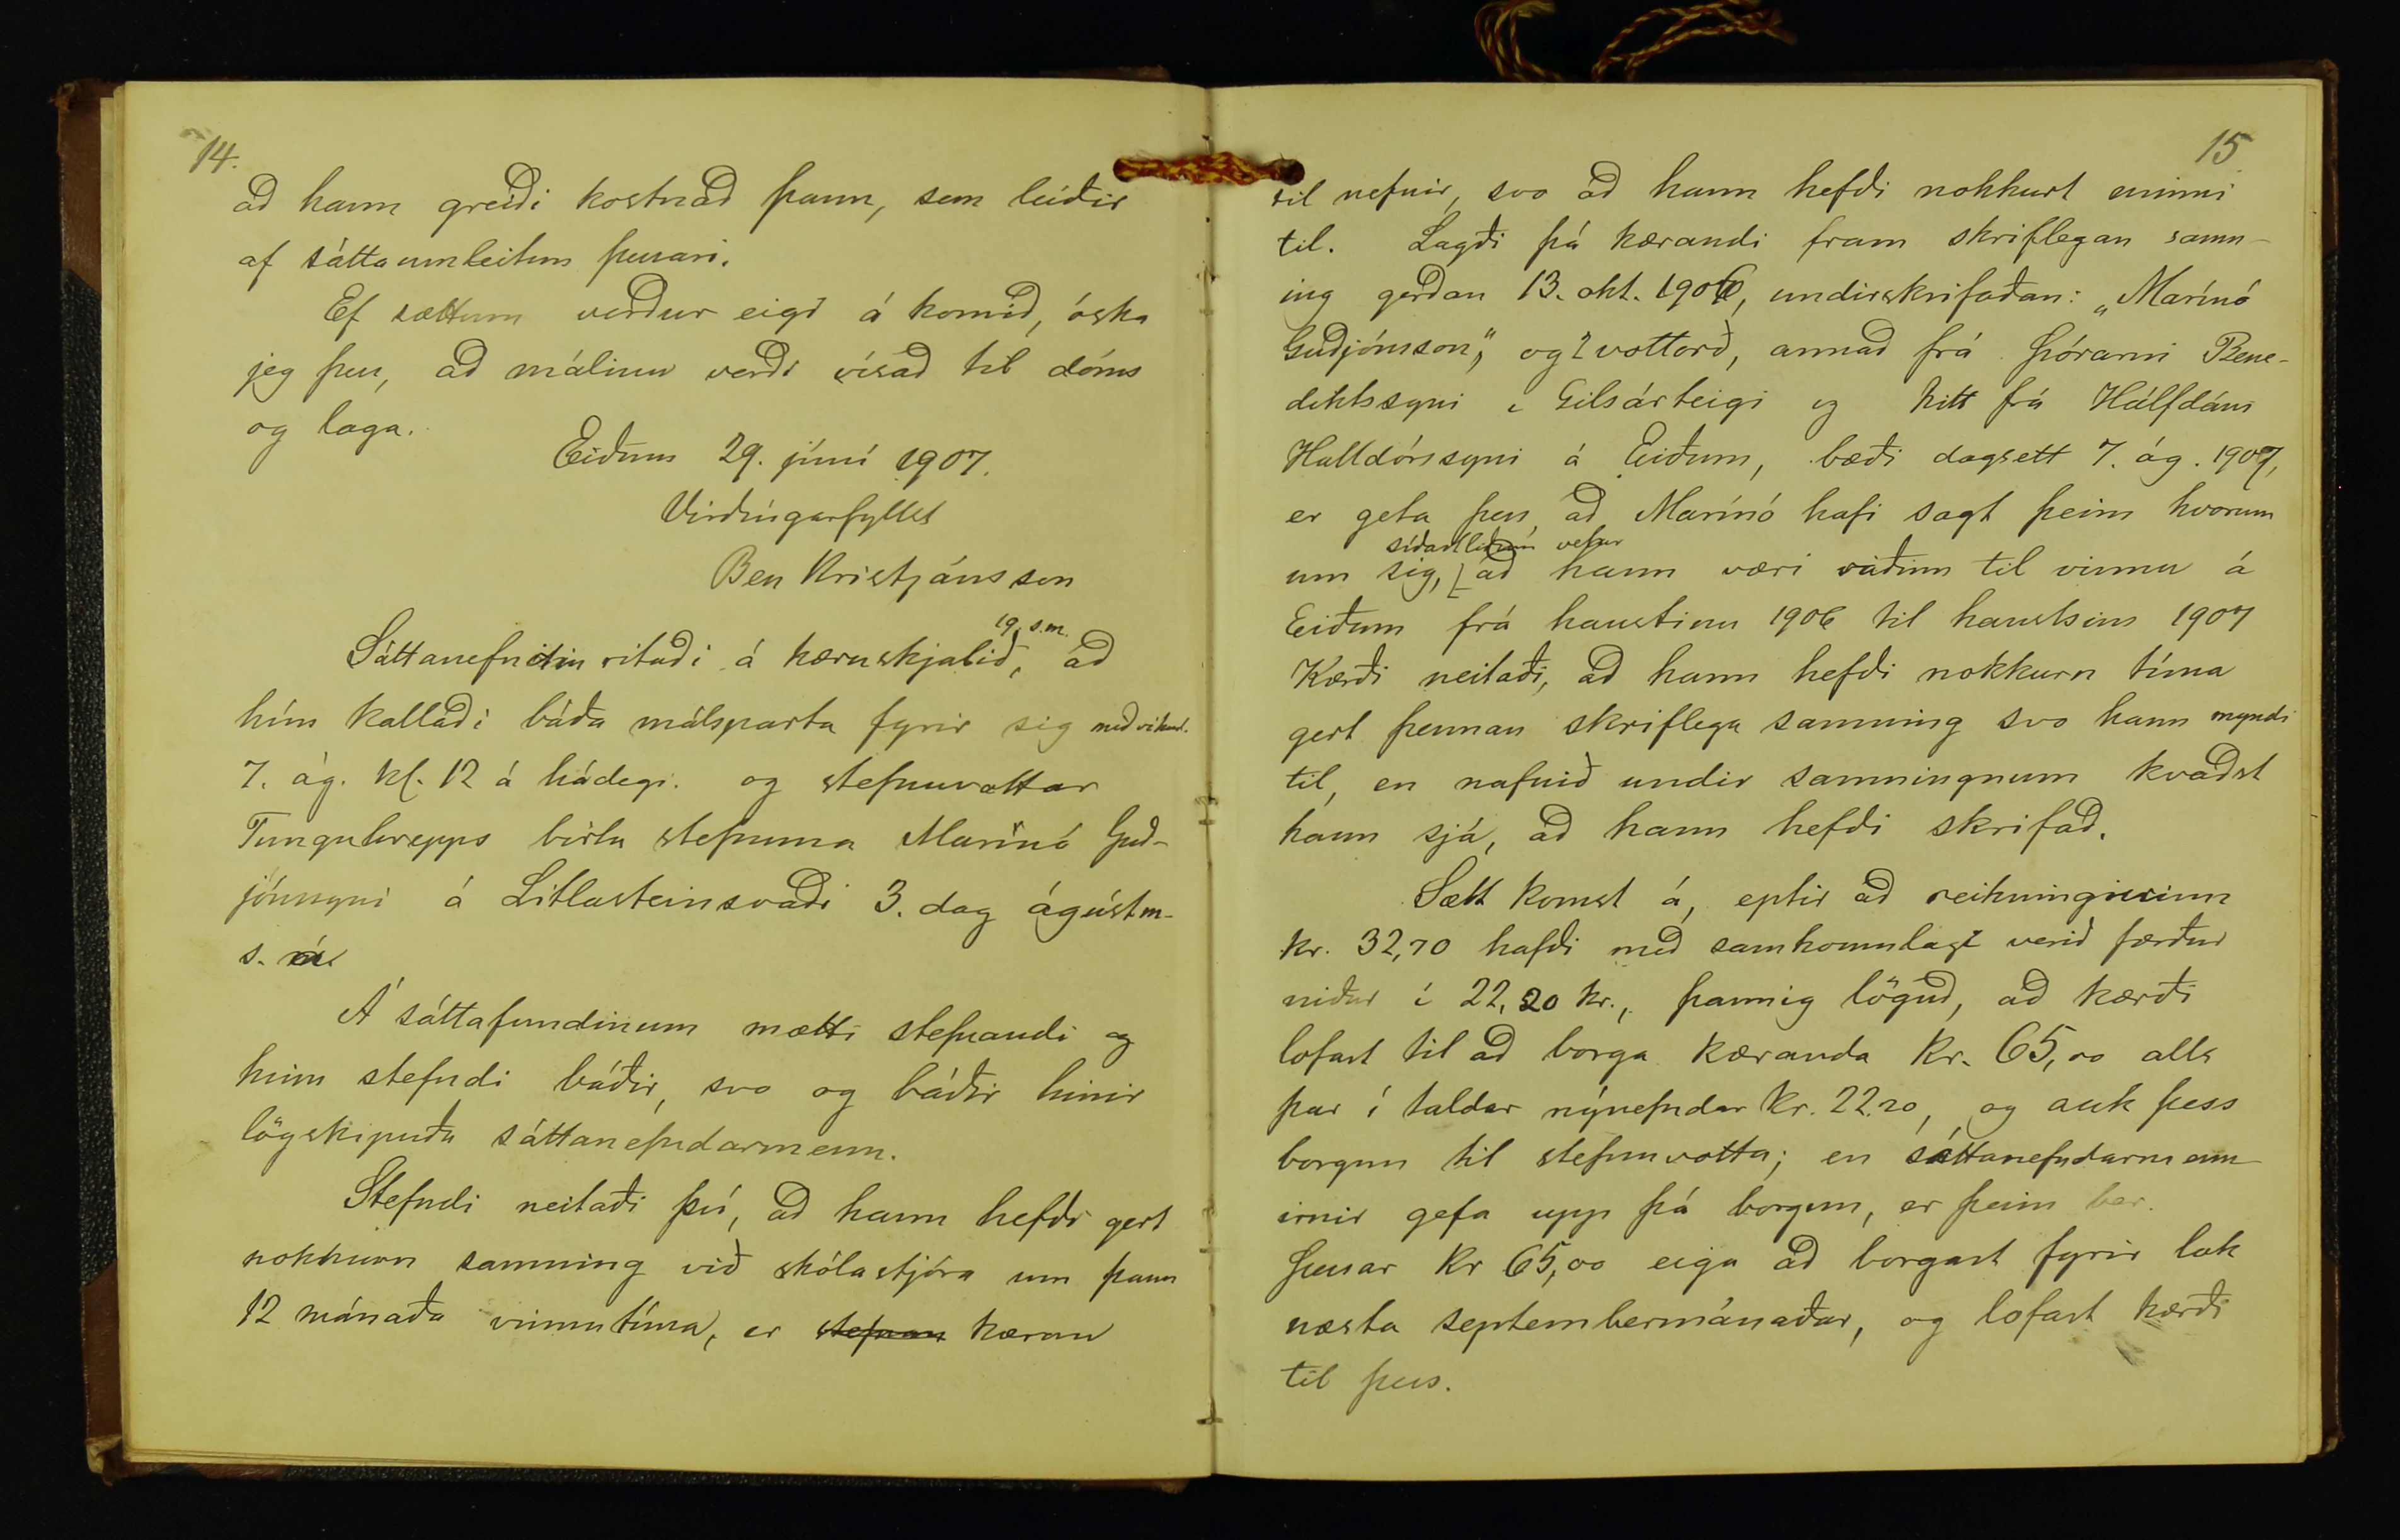 14.
að hann greiði kostnað þann, sem leiðir
af sáttaumleitun þessari.
Ef sættum verður eigi á komið, óska
jeg þess, að málinu verði vísað til dóms
og laga.
Eiðum 29. júní 1907.
Virðingarfyllst
Ben Kristjánsson
19. s.m.
Sáttanefndin ritaði á kæruskjalið, að
hún kallaði báða málsparta fyrir sig miðvikud.
7. ág. kl. 12 á hádegi. og stefnuvottar
Tunguhrepps birtu stefnuna Marínó Guð-
jónssyni á Litlasteinsvaði 3. dag ágústm-
s. á.
Á sáttafundinum mætti stefnandi og
hinn stefndi báðir, svo og báðir hinir
lögskipuðu sáttanefndarmenn.
Stefndi neitaði því, að hann hefði gert
nokkurn samning við skólastjóra um þann
12 mánaða vinnutíma, er stefnan kæran
15
til nefnir, svo að hann hefði nokkurt minni
til. Lagði þá kærandi fram skriflegan samn-
ing gerðan 13. okt. 1906, undirskrifaðan: „Marínó
Guðjónsson", og 2 vottorð, annað frá Þórarni Bene-
diktssyni í Gilsárteigi og hitt frá Hálfdáni
Halldórssyni á Eiðum, bæði dagsett 7. ág. 1907,
er geta þess, að Marínó hafi sagt þeim hvorum
síðastliðinn vetur
um sig, að hann væri ráðinn til vinnu á
Eiðum frá haustinu 1906 til haustsins 1907
Kærði neitaði, að hann hefði nokkurn tíma
gert þennan skriflega samning svo hann myndi
til, en nafnið undir samningnum kvaðst
hann sjá, að hann hefði skrifað.
Sætt komst á, eptir að reikningurinn
kr. 32,70 hafði með samkomulagi verið færður
niður í 22,20 kr., þannig löguð, að kærði
lofast til að borga kæranda kr. 65,00 alls
þar í taldar nýnefndar kr. 22.20, og auk þess
borgun til stefnuvotta; en sáttanefndarmenn-
irnir gefa upp þá borgun, er þeim ber.
Þessar kr 65,00 eiga að borgast fyrir lok
næsta septembermánaðar, og lofast kærði
til þess.